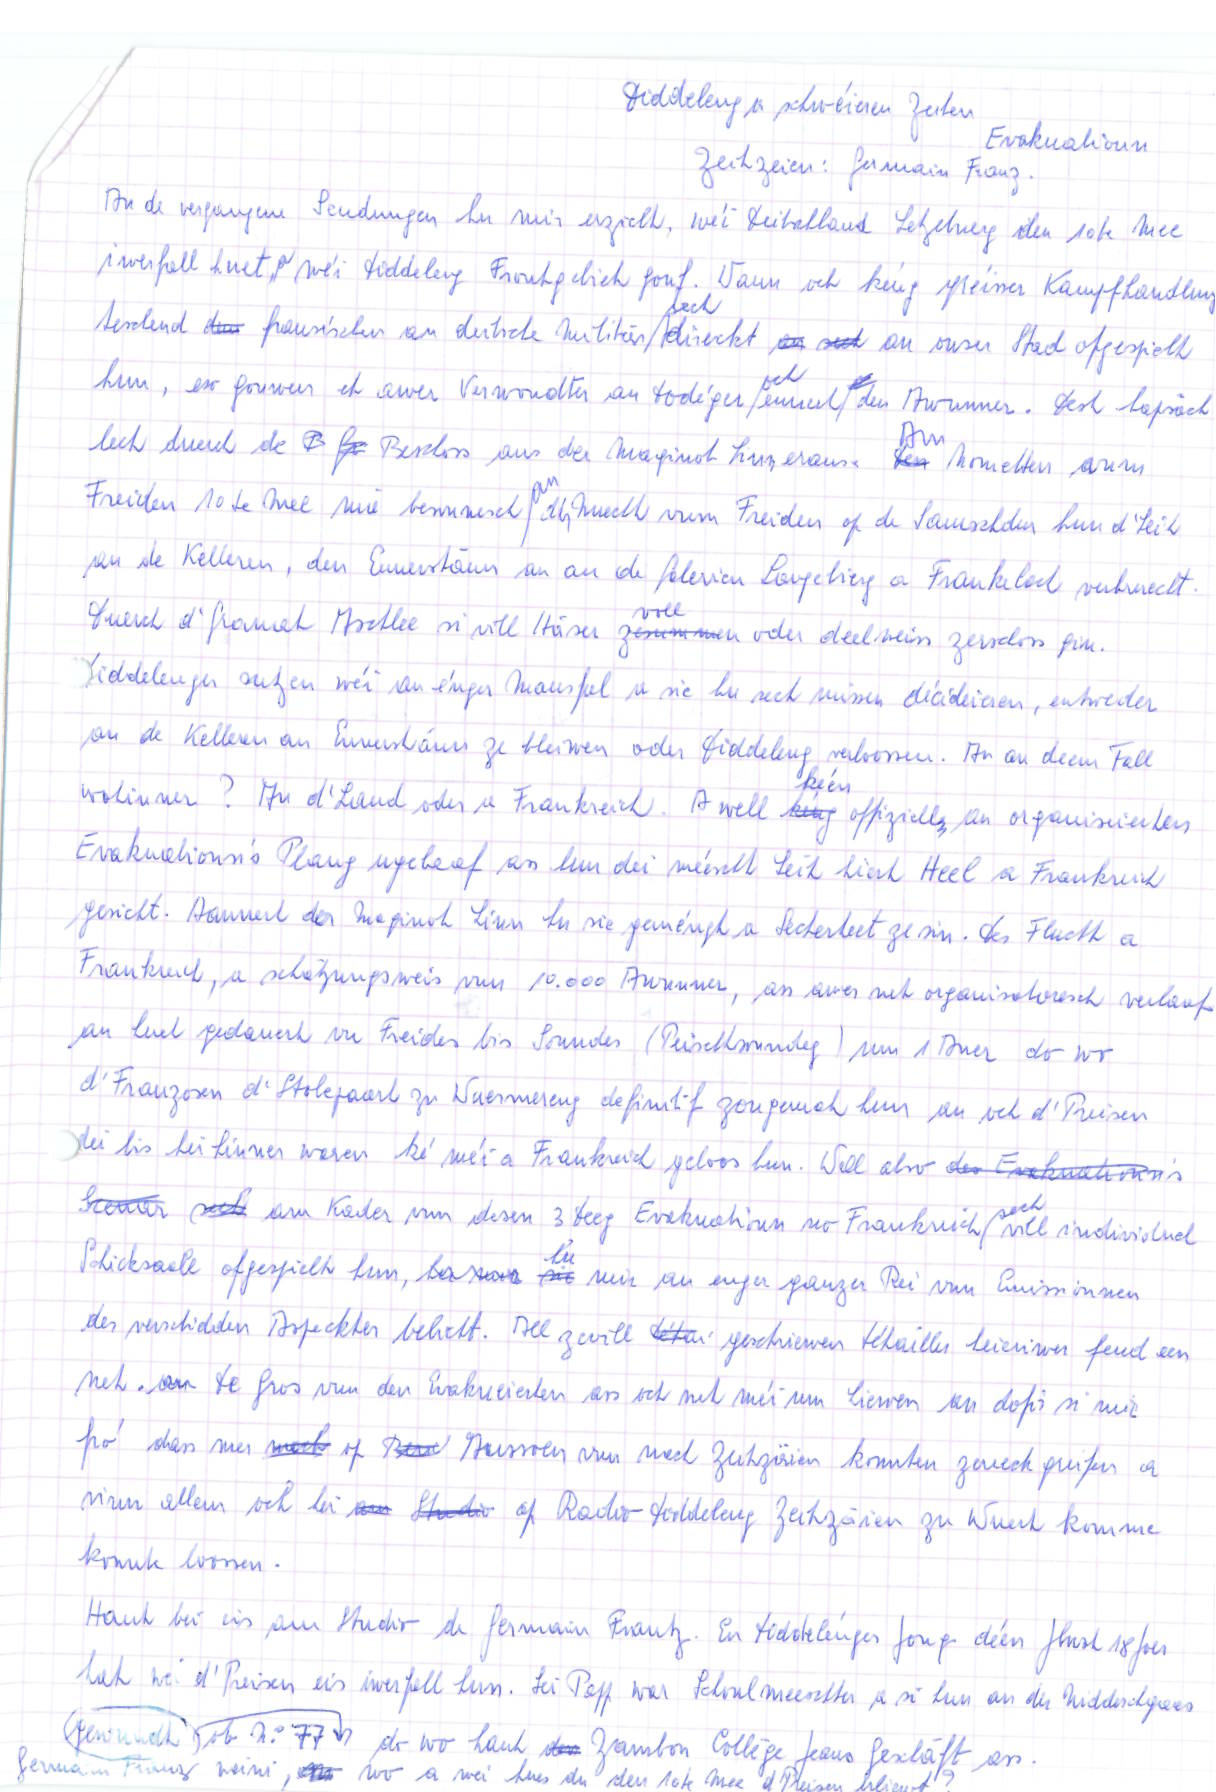 Diddeleng a schwéieren Zeiten
Evakuatioun
Zeitzeien: Germain Franz.
An de vergangene Sendungen hu mir erzielt, wéi Deitschland Letzebuerg den 10te Mee
iwerfall huet, wéi Diddeleng Frontgebiet gouf. Wann och keng gréisser Kampfhandlung
teschend franséischen an deitsche Militär sech direkt an onser Stad ofgespielt
hun, eso gouwen et awer Verwondter an Dodéger och ennert den Awunner. Dest hapsäch
lech duerch de Beschoss aus der Maginot Linn eraus. Am Nometten vum
Freiden 10te Mee mie besonnesch an d'Nuecht vum Freiden op de Samschden hun d'Leit
an de Kelleren, den Ennerstänn an an de Galerien Langebierg a Frankelach verbruecht.
Duerch d'Granat Artillerie si vill Häser voll oder deelweis zerschoss gin.
Diddelenger sutzen wéi an enger Mausfal a sie hu sech missen décidéieren, entweder
an de Kelleren an Ennerstänn ze bleiwen oder Diddeleng verloossen. An an deem Fall
wohinner? An d'Land oder a Frankreich. A well kéen offiziellen an organiséierten
Evakuatioun's Plang ugelaf ass hun déi méescht Leit hiert Heel a Frankreich
gesicht. Hannert der Maginot Linn hu sie gemengt a Sécherheet ze sin. Des Flucht a
Frankreich, a schätzungsweis vun 10.000 Awunner, ass awer net organisatoresch verlaf
an huet gedauert vu Freides bis Sonndes (Péischtsonndeg) um 1 Auer do wo
d'Franzosen d'Stolspaart zu Wuermereng definitif zougemach hun an och d'Preisen
déi bis hei hinner waren ké méi a Frankreich geloos hun. Well also
am Kader vun desen 3 Deeg Evakuatioun no Frankreich sech vill individuel
Schicksaale ofgespielt hun, hu mir an enger ganzer Rei vun Emissiounen
des verschidden Aspeckter beliicht. All zevill geschriewen Detailler heiriwer fend een
net. De Gros vun den Evakuéierten ass och net méi um Liewen an dofir si mir
fro dass mer op Aussoen vun nach Zeitzäien konnten zereck greifen a
virun allem och hei op Radio Diddeleng Zeitzäien zu Wuert komme
konnte loossen.
Haut bei eis am Studio de Germain Frantz. En Diddelenger Jong déen just 18 Joer
hat wéi d'Preisen eis iwerfall hun. Sei Papp war Schoulmeeschter a si hun an der Nidderchgaass
gewunnt ob N° 77 do wo haut Zambon Collège Jeans Geschäft ass.
Germain Franz wéini, wo a wéi hues du den 10te Mee d'Preisen erlieewt?